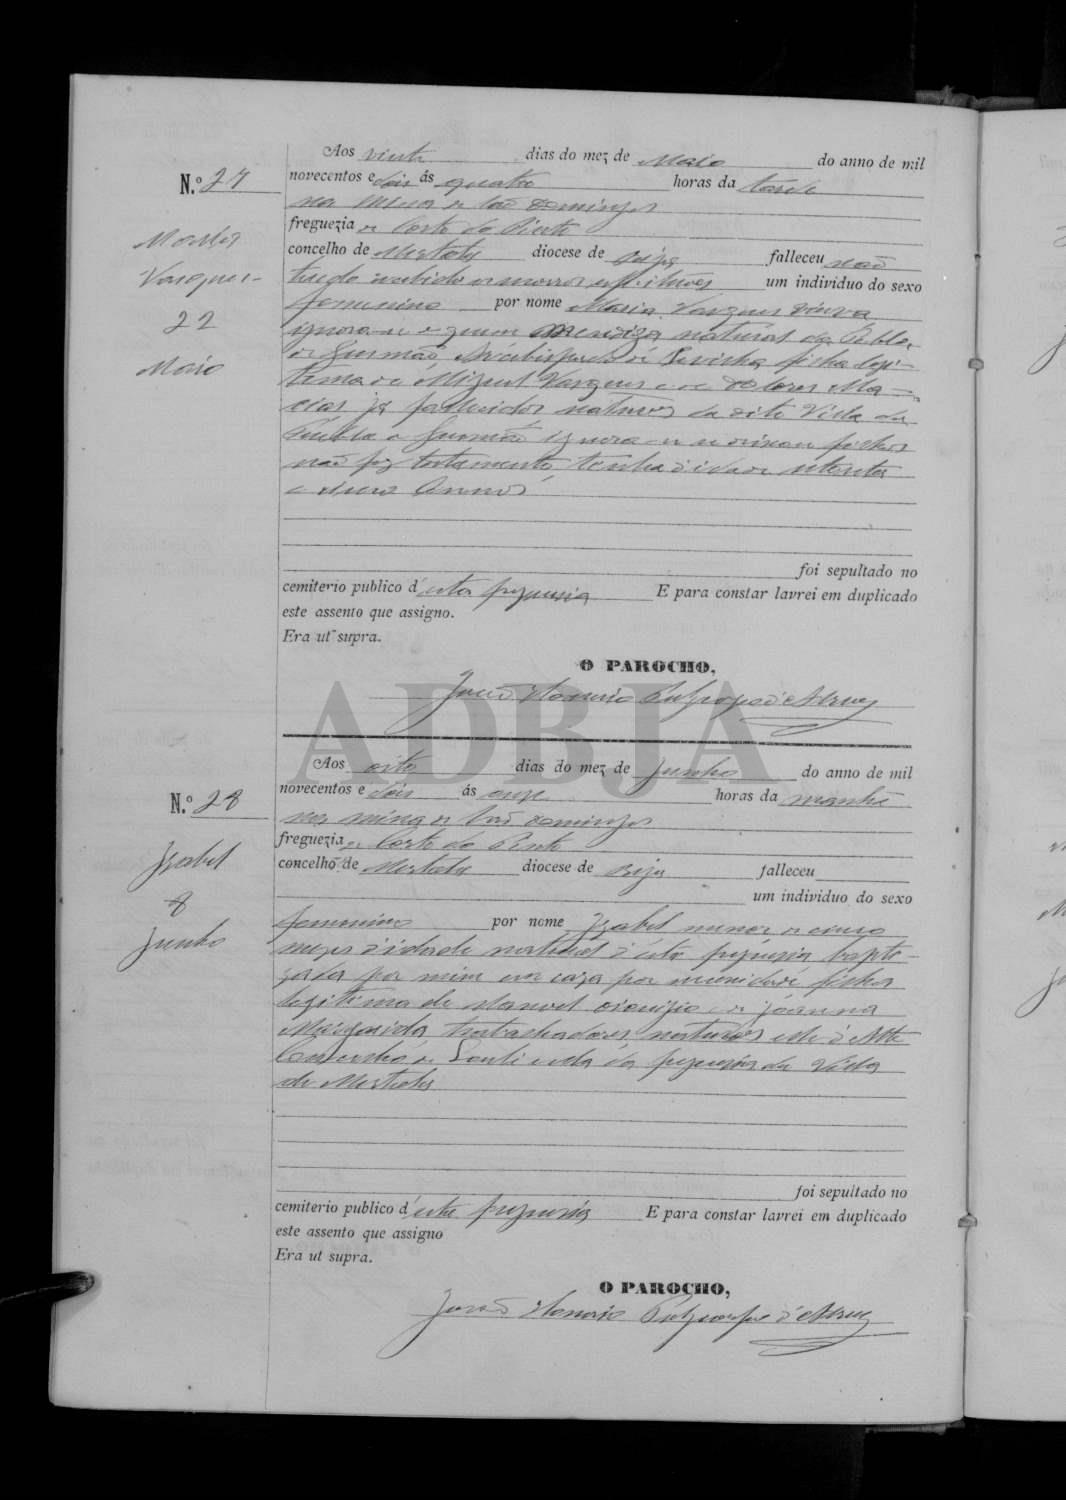 Aos vinte dias do mez de Maio do anno de mil
N.º 27
novecentos e dois ás quatro horas da tarde
na Mina de São Domingos
freguezia de Corte do Pinto
Vasques
concelho de Mertola diocese de Beja falleceu não
tendo recebido um individuo do sexo
22
femenino por nome Maria Vasques viuva
ignora-se de quem natural da Puebla
Maio
de Gusmão Arcebispado de Sevilha filha legi-
tima de Miguel Vasques e de Dolores Ma-
cias já fallecidos naturaes da dita Villa da
Puebla de Gusmão ignora-se se deixou filhos
não fez testamento, tenha d'idade setenta
e annos
foi sepultado no
cemiterio publico d'esta freguesia E para constar lavrei em duplicado
este assento que assigno.
Era ut supra.
O PAROCHO,
ADBJA
Aos oito dias do mez de Junho do anno de mil
novecentos e dois ás onze horas da manhã
N.º 28
na mina de São Domingos
freguezia de Corte do Pinto
Izabel
concelho de Mertola diocese de Beja falleceu
um individuo do sexo
8
femenino por nome Izabel menor de cinco
Junho
mezes d'idade natural d'esta freguesia bapti-
zada por mim em caza por necessidade filha
legitima de Manuel Dionizio e de Joanna
Margarida trabalhadores naturaes elle d'Alte
Concelho de Loulé e ella da freguesia da Villa
de Mertola
foi sepultado no
cemiterio publico d'esta freguesia E para constar lavrei em duplicado
este assento que assigno
Era ut supra.
O PAROCHO,